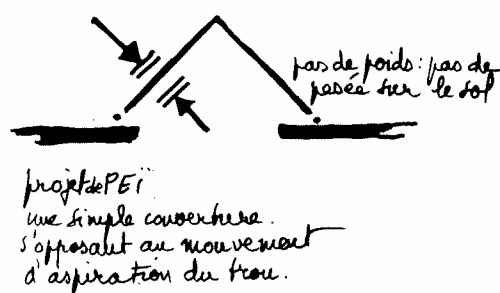 pas de poids: pas de
pesée sur le sol
projet de PEÏ
une simple couverture.
s'opposant au mouvement
d'aspiration du trou.